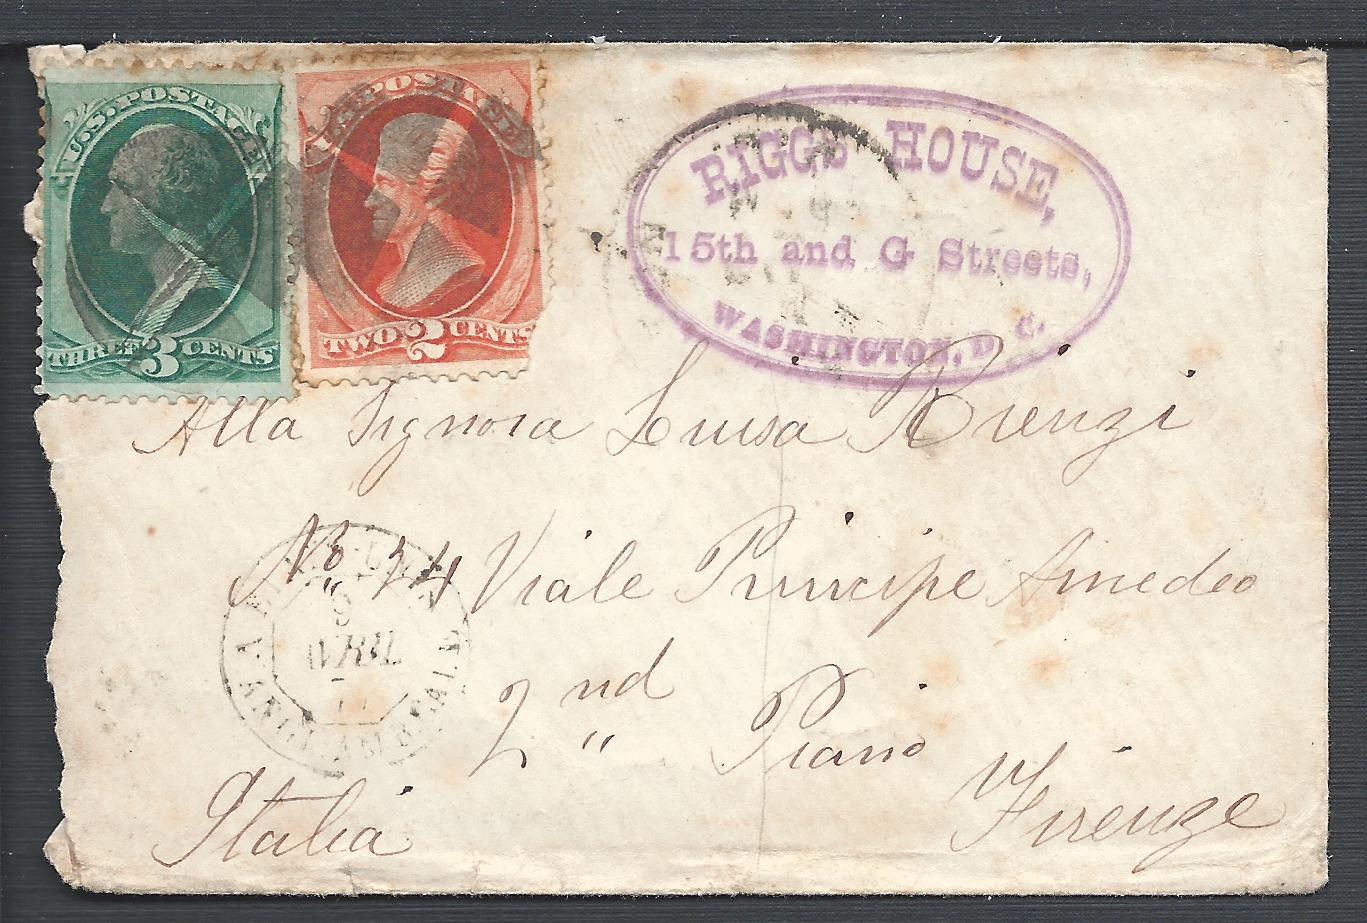 U.S. POSTAGE
THREE 3 CENTS
U.S. POSTAGE
TWO 2 CENTS
RIGGS HOUSE,
15th and G Streets,
WASHINGTON, D. C.
Alla Signora Luisa Rienzi
No. 24 Viale Principe Amedeo
2nd Piano
Firenze
Italia
9
AVRIL